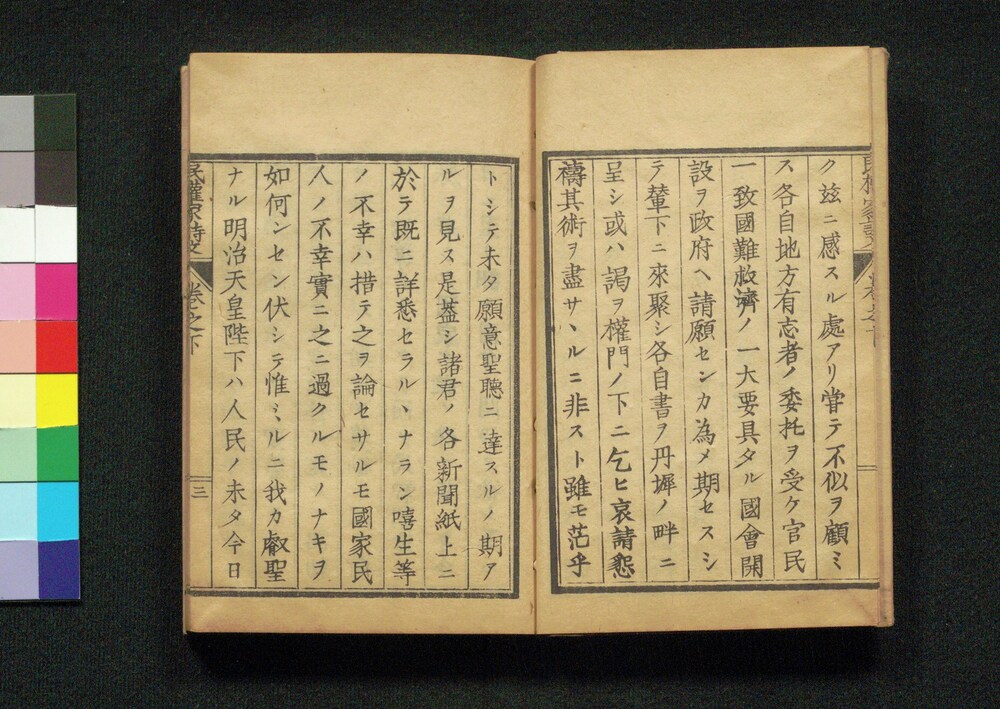 ク玆ニ感スル處アリ甞テ不似ヲ顧ミ
ス各自地方有志者ノ委托ヲ受ケ官民
一致國難救濟ノ一大要具タル國會開
設ヲ政府ヘ請願センカ為メ期セスシ
テ輦下ニ來聚シ各自書ヲ丹墀ノ畔ニ
呈シ或ハ謁ヲ權門ノ下ニ乞ヒ哀請懇
禱其術ヲ盡サヽルニ非スト雖モ茫乎
トシテ未タ願意聖聽ニ達スルノ期ア
ルヲ見ス是蓋シ諸君ノ各新聞紙上ニ
於テ既ニ詳悉セラルヽナラン嘻生等
ノ不幸ハ措テ之ヲ論セサルモ國家民
人ノ不幸實ニ之ニ過クルモノナキヲ
如何ンセン伏シテ惟ミルニ我カ叡聖
ナル明治天皇陛下ハ人民ノ未タ今日
民權家詩文
卷之下
三